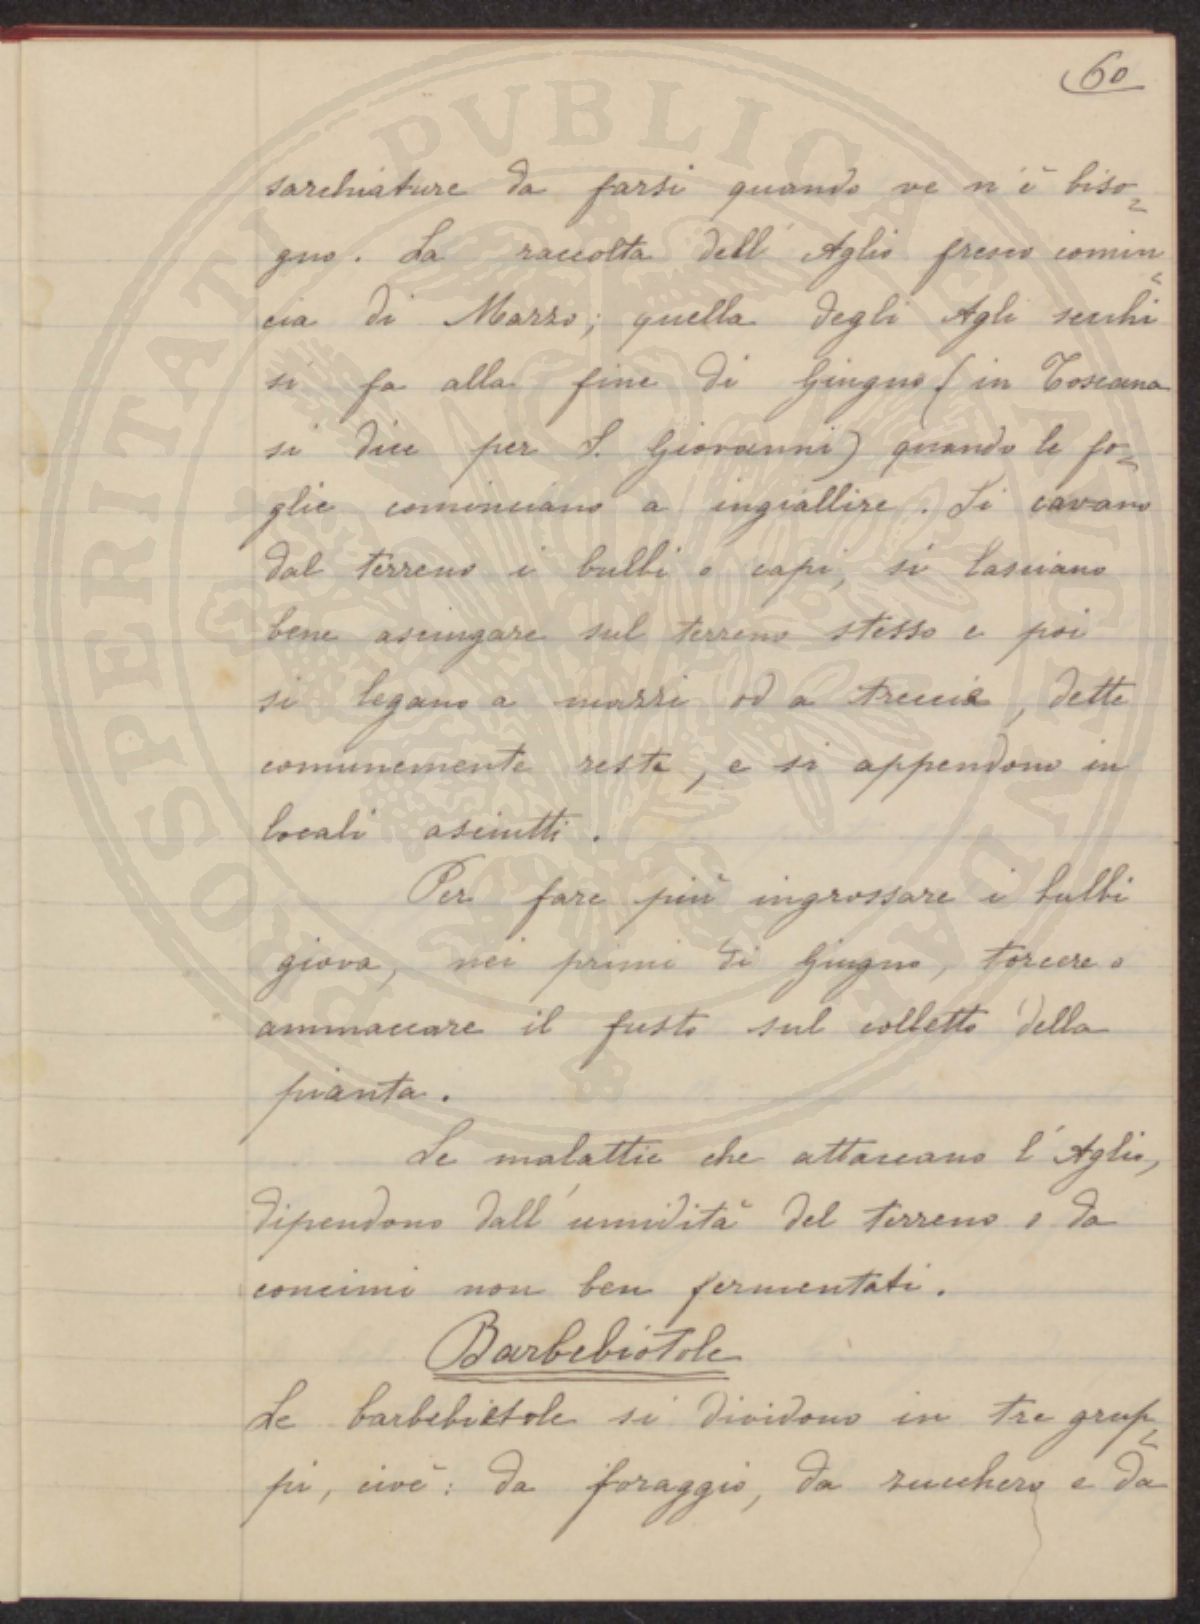 60
sarchiature da farsi quando ve n'è biso-
gno. La raccolta dell'Aglio fresco comin-
cia di Marzo; quella degli Agli secchi
si fa alla fine di Giugno (in Toscana
si dice per S. Giovanni) quando le fo-
glie cominciano a ingiallire. Si cavano
dal terreno i bulbi o capi, si lasciano
bene asciugare sul terreno stesso e poi
si legano a mazzi od a treccie, dette
comunemente reste, e si appendono in
locali asciutti.
Per fare più ingrossare i bulbi
giova, nei primi di Giugno, torcere o
ammaccare il fusto sul colletto della
pianta.
Le malattie che attaccano l'Aglio,
dipendono dall'umidità del terreno o da
concimi non ben fermentati.
Barbebiotole
Le barbebietole si dividono in tre grup-
pi, cioè: da foraggio, da zucchero e da
PROSPERITATI PUBLICAE AUGENDAE